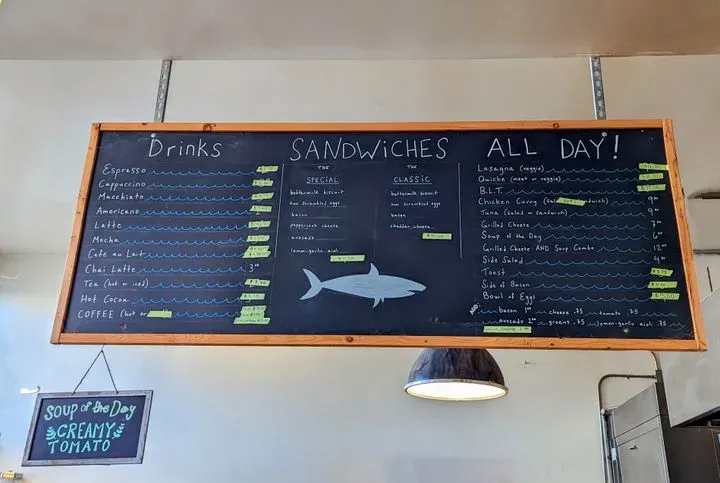 Drinks
Espresso
Cappuccino
Macchiato
Americano
Latte
Mocha
Cafe au Lait
Chai Latte 3
Tea (hot or iced)
Hot Cocoa
COFFEE (hot or
SANDWiCHES
THE
SPECIAL
buttermilk biscuit
two scrambled eggs
bacon
pepperjack cheese
avocado
lemon-garlic aioli
THE
CLASSIC
buttermilk biscuit
two scrambled eggs
bacon
cheddar cheese
ALL DAY!
Lasagna (veggie)
Quiche (meat or veggie)
B.L.T.
Chicken Curry
Tuna (salad or sandwich) 9
Grilled Cheese 7
Soup of the Day 6
Grilled Cheese AND Soup Combo 12
Side Salad 4
Toast
Side of Bacon
Bowl of Eggs
ADD:
bacon cheese .75 tomato .75
avocado greens .75 lemon-garlic aioli .75
SOUP of the Day
CREAMY
TOMATO